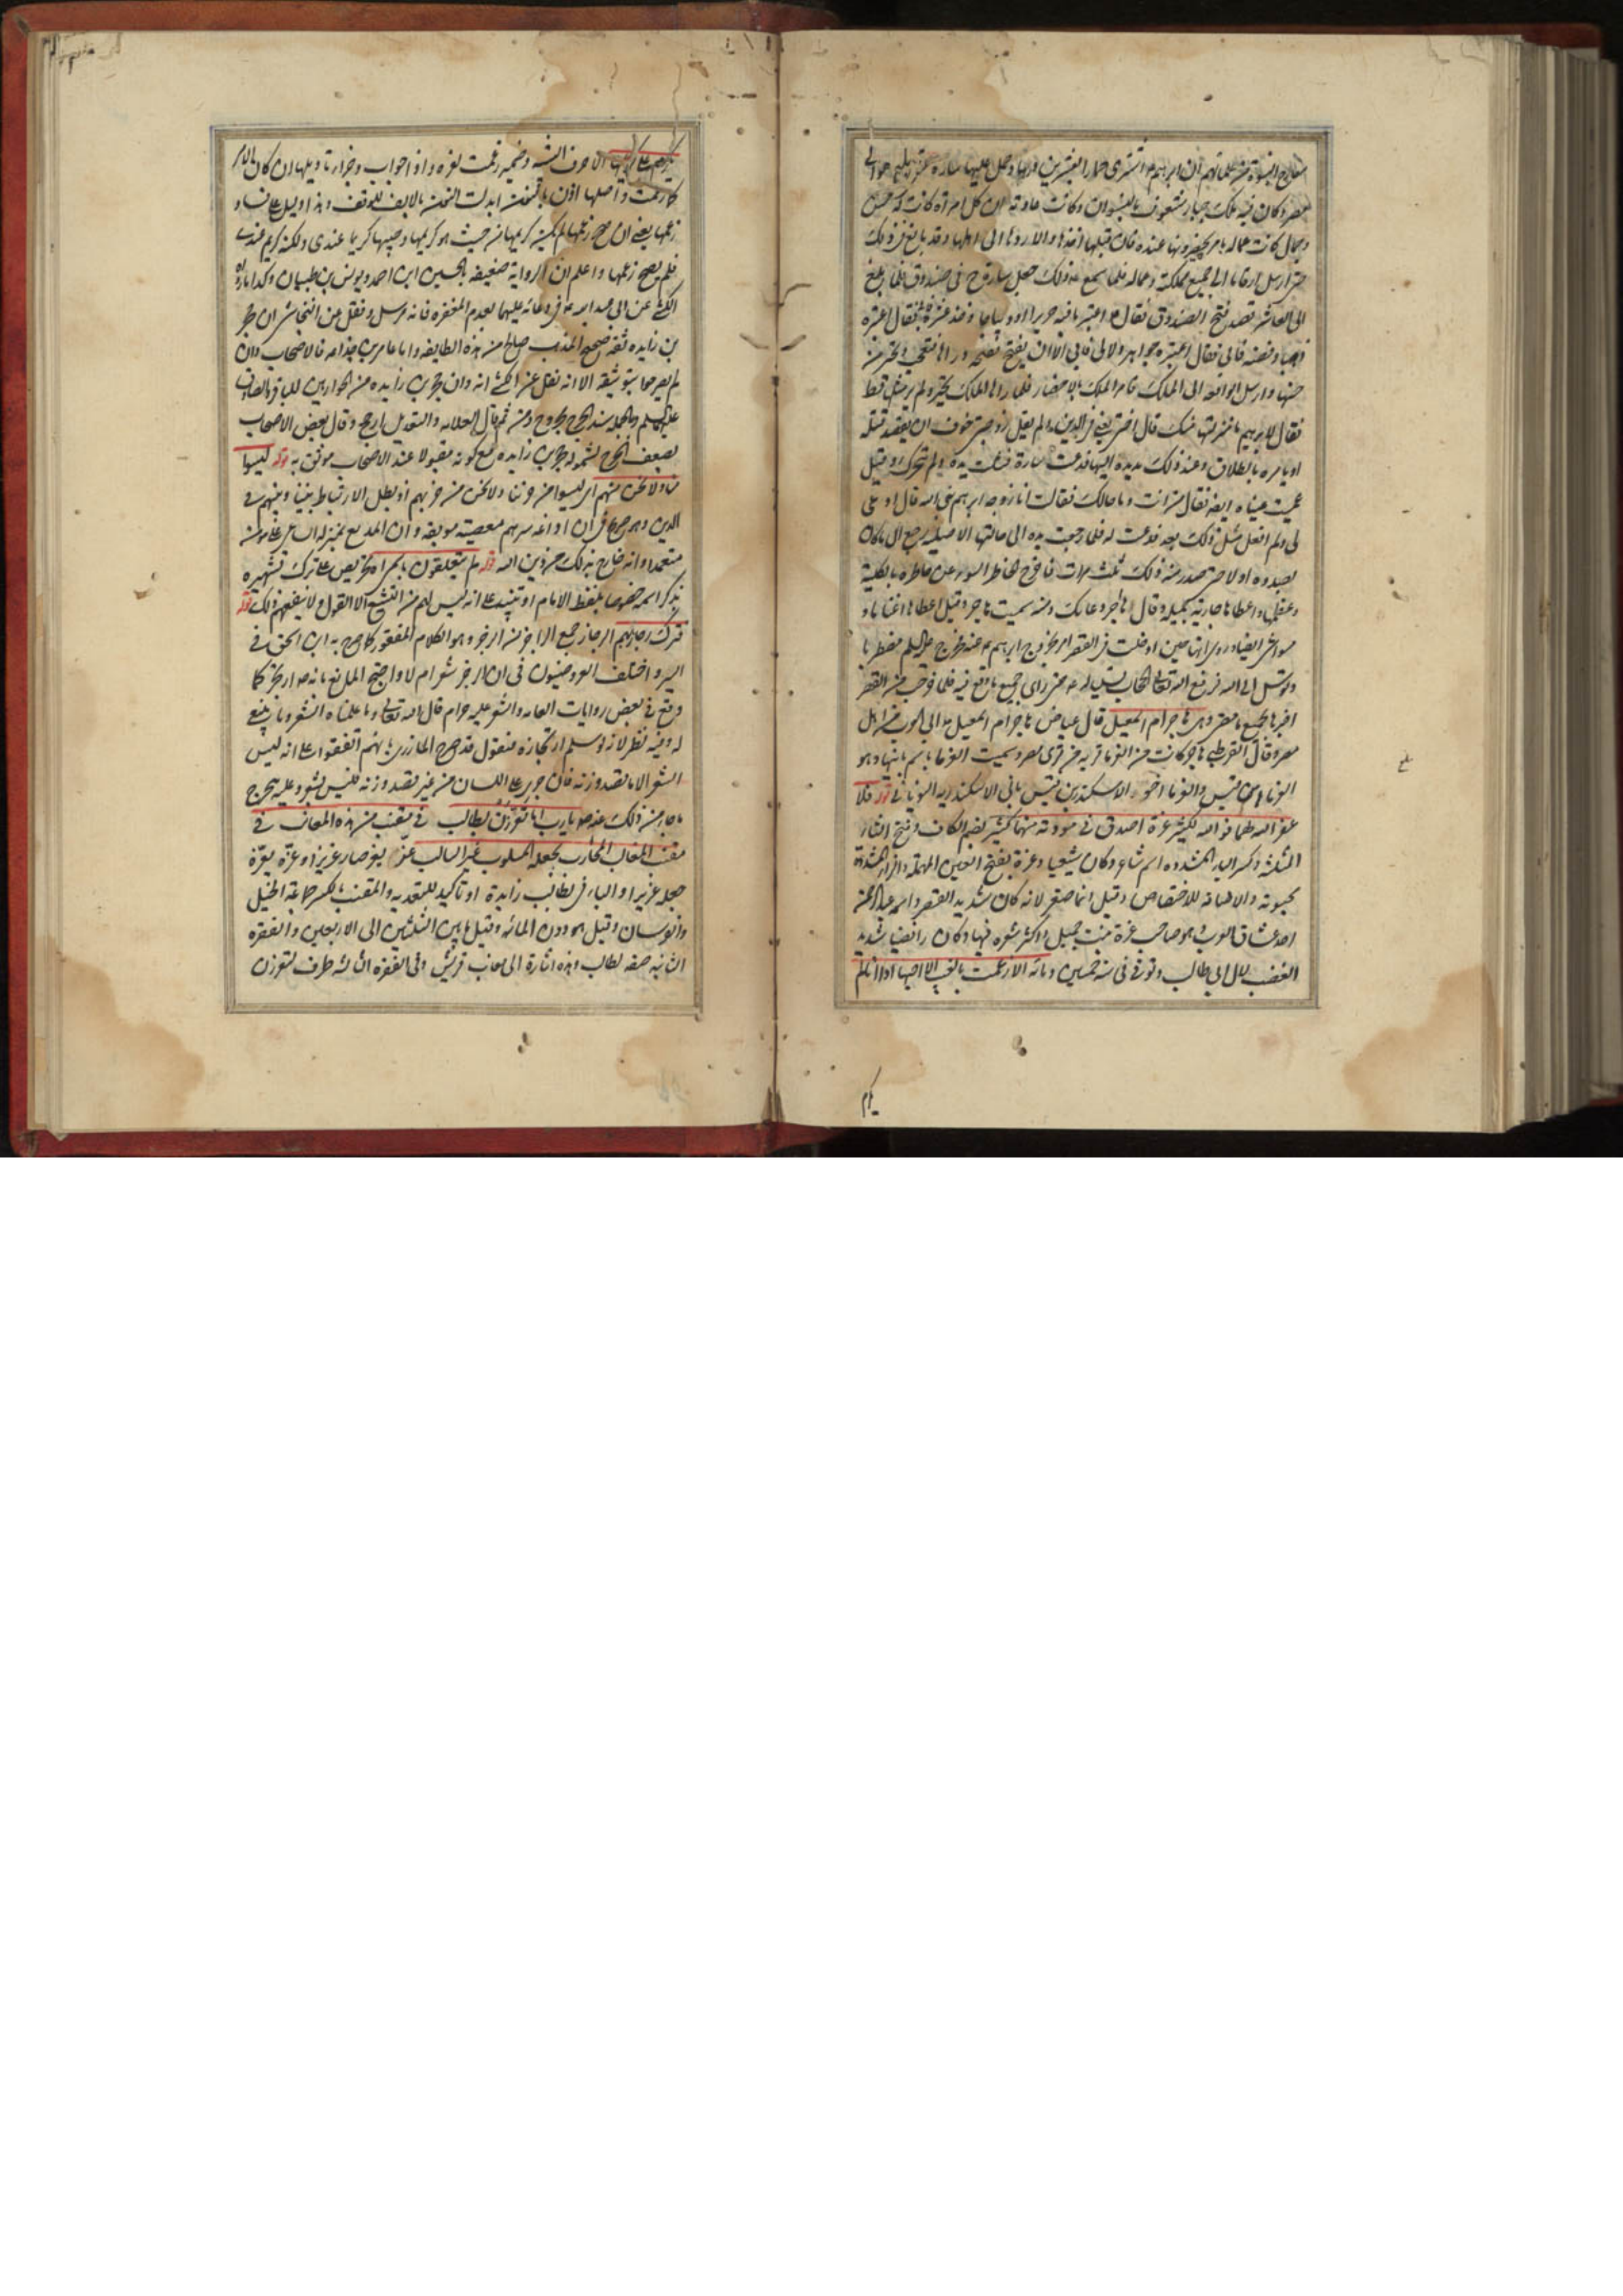 مصر وكان فيه ملك جبار مشعوف بالنسوان وكانت عادته ان كل امرأة كانت له حسن
وجمال كانت عماله يامر بتجهيزونها عنده فان قبلها اخذها والا ردها الى اهلها وقد بالغ في ذلك
حتى ارسل ارقاما الى جميع مملكته وعماله فلما سمع ع ذلك جعل سارة ع في صندوق فلما بلغ
الى العاشر قصد فتح الصندوق فقال ع اعتبر ما فيه حريرا او ديباجا وخذ عشره فقال اعتبره
ذهبا وفضة فابى فقال اعتبره جواهر ولالى فابى الا ان يفتح ففتحه وراها فتعجب وتحير من
حسنها وارسل الواقعه الى الملك فامر الملك بالاحضار فلما راها الملك تحير ولم ير مثلها قط
فقال لابرهيم ما منزلتها منك قال اختى يعنى فى الدين ولم يقل زوجتى خوف ان يقصد قتله
او يامره بالطلاق وعند ذلك مد يده اليها فدعت سارة فشلت يده ولم تتحرك وقيل
عميت عيناه ايضا فقال من انت وما حالك فقالت انا زوجة ابرهيم نبى الله قال ادعى
لى ولم افعل مثل ذلك بعد فدعت له فلما رجعت يده الى حالتها الاصلية رجع الى ما كان
بصدده اولا حتى صدر منه ذلك ثلث مرات فاخرج الخاطر السوء عن خاطره بالكلية
وعظمها واعطاها جارية جميلة وقال ها اجر دعائك ومنه سميت هاجر وقيل اعطاها اغناما و
مواشى ايضا وروى انها حين ادخلت فى القصر امر بخروج ابرهيم ع عنه فخرج عليه السلم مضطربا
وتوسل الى الله فرفع الله تعالى الحجاب تسلية له ع حتى راى جميع ما وقع فيه فلما خرجت من القصر
اخبرها بجميع ما مضى وهى هاجر ام اسمعيل قال عياض هاجر ام اسمعيل من اهل
مصر وقال القرطبى هاجر كانت من الفرما قرية من قرى مصر وسميت الفرما باسم بانيها وهو
الفرما بن قليس والفرما اخو الاسكندر بن قليس بانى الاسكندرية اليونانى قوله فلا
غفر الله لهما فو الله لكثير عزة اصدق فى مودته منهما كثير بضم الكاف وفتح الثاء
المثلثة وكسر الياء المشددة اسم شاعر وكان شيعيا وعزة بفتح العين المهملة والزاء المشددة
محبوبته والاضافة للاختصاص وقيل انما صغر لانه كان شديد القصر واسمه عبد الرحمن
احد عشاق العرب وهو صاحب عزة بنت جميل واكثر شعره فيها وكان رافضيا شديد
التعصب لال ابى طالب وتوفى فى سنة خمسين ومائة الا زعمت بالغيب الا احبها اذا انا لم
يكرم
يكرم على كريمها الا حرف التنبيه وضمير زعمت لعزة واذا جواب وجزاء تاويلها ان كان الامر
كما زعمت واصلها اذن بالنون ابدلت النون بالالف للوقف وهذا دليل على فساد
زعمها يعنى ان صح زعمها لم يكن كريمها من حيث هو كريمها وحبيبها كريما عندى ولكنه كريم عندى
فلم يصح زعمها واعلم ان الرواية ضعيفة بالحسين ابن احمد ويونس بن ظبيان وكذا ما رواه
الكشى عن ابى عبد الله ع فى دعائه عليهما بعدم المغفرة فانه مرسل ونقل عن النجاشى ان حجر
بن زايده ثقة صحيح المذهب صالح من هذه الطايفه واما عامر بن جذاعه فالاصحاب وان
لم يصرحوا بتوثيقه الا انه نقل عن الكشى انه وان حجر بن زايده من الحواريين للباقر والصادق
عليهما السلم وبالجملة سند الجرح مجروح ومن ثم قال العلامه والتعديل ارجح وقال بعض الاصحاب
يضعف الجرح لشموله حجر بن زايده مع كونه مقبولا عند الاصحاب موثق به قوله ليسوا
منا ولا نحن منهم اى ليسوا من حزبنا ولا نحن من حزبهم اذ بطل الارتباط بيننا وبينهم فى
الدين وهو صريح فى ان اذاعة سرهم معصية موبقة وان المذيع بمنزلة الساعى على قاتله
متعمدا وانه خارج بذلك من دين الله قوله لم يتعلقون باسمى اه تحريص على ترك تشهيره
بذكر اسمه خصوصا بلفظ الامام او تنبيه على انه ليس لهم من التشيع الا القول ولا ينفعهم ذلك قوله
فترك رجازهم الرجاز جمع الراجز من الرجز وهو الكلام المقفى كما صرح به ابن اسحق فى
السير واختلف العروضيون فى ان الرجز شعر ام لا واحتج المانع بانه ص ارتجز كما
وقع فى بعض روايات العامه والشعر عليه حرام قال الله تعالى وما علمناه الشعر وما ينبغى
له وفيه نظر لانه لو سلم ارتجازه فنقول قد صرح المازرى بانهم اتفقوا على انه ليس
الشعر الا ما يقصد وزنه فان جرى على اللسان من غير قصد وزنه فليس بشعر وعليه يخرج
ما جاء من ذلك عنه ص يا رب اما تعززن بطالب فى مقنب من هذه المقانب فى
مقنب المغالب المحارب بجعله المسلوب غير السالب عز يعز صار عزيزا وعزه يعزه
جعله عزيزا والباء فى بطالب زايدة او تاكيد للتعديه والمقنب بالكسر جماعة الخيل
والفرسان وقيل هو دون المائه وقيل ما بين الثلثين الى الاربعين والفقره
الثانيه صفه لطالب وهذه اشارة الى مقانب قريش وفى الفقره الثالثه ظرف لتعززن